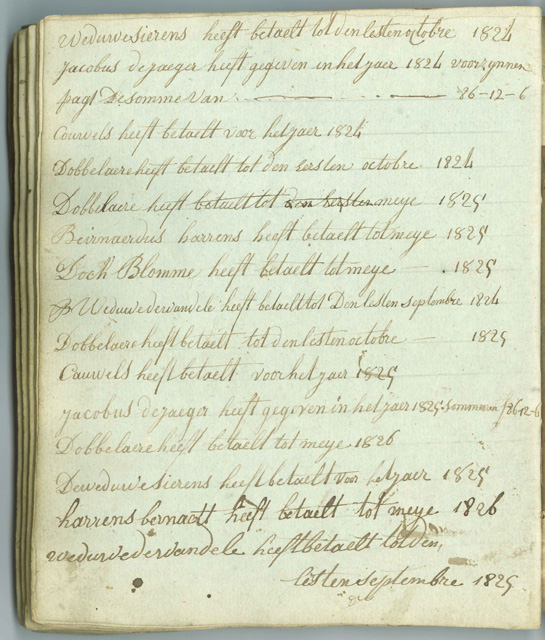 Weduwe sierens heeft betaelt tot den lesten octobre 1824
jacobus dejaeger heeft gegeven in het jaer 1824 voor zynnen
pagt De somme van 26-12-6
Couvels heeft betaelt voor het jaer 1824
Dobbelaere heeft betaelt tot den eersten octobre 1824
Dobbelaere heeft betaelt tot den eersten meye 1825
Beirnaerdus harrens heeft betaelt tot meye 1825
Blomme heeft betaelt tot meye 1825
Weduwe dervandele heeft betaelt tot Den lesten septembre 1824
Dobbelaere heeft betaelt tot den lesten octobre 1825
Cauvels heeft betaelt voor het jaer 1825
jacobus dejaeger heeft gegeven in het jaer 1825 somme van 26-12-6
Dobbelaere heeft betaelt tot meye 1826
De weduwe sierens heeft betaelt voor het jaer 1825
harrens bernaert heeft betaelt tot meye 1826
weduwe dervandele heeft betaelt tot den
lesten septembre 1825